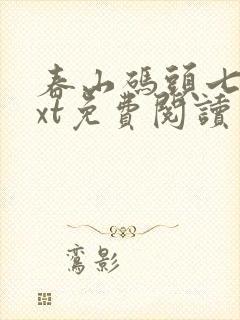 春山碼頭七
xt免費閱讀
鸞影